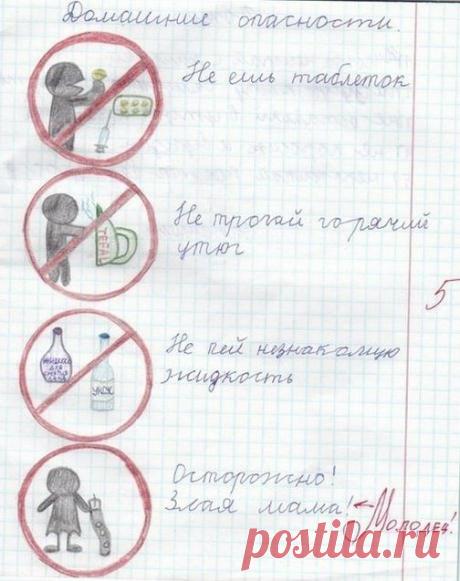 Домашние опасности.
Не ешь таблеток
TEFAL
Не трогай горячий
утюг
5
Не пей незнакомую
жидкость
ДЛЯ
УКСУС
Осторожно!
Злая мама!
Молодец!
postila.ru